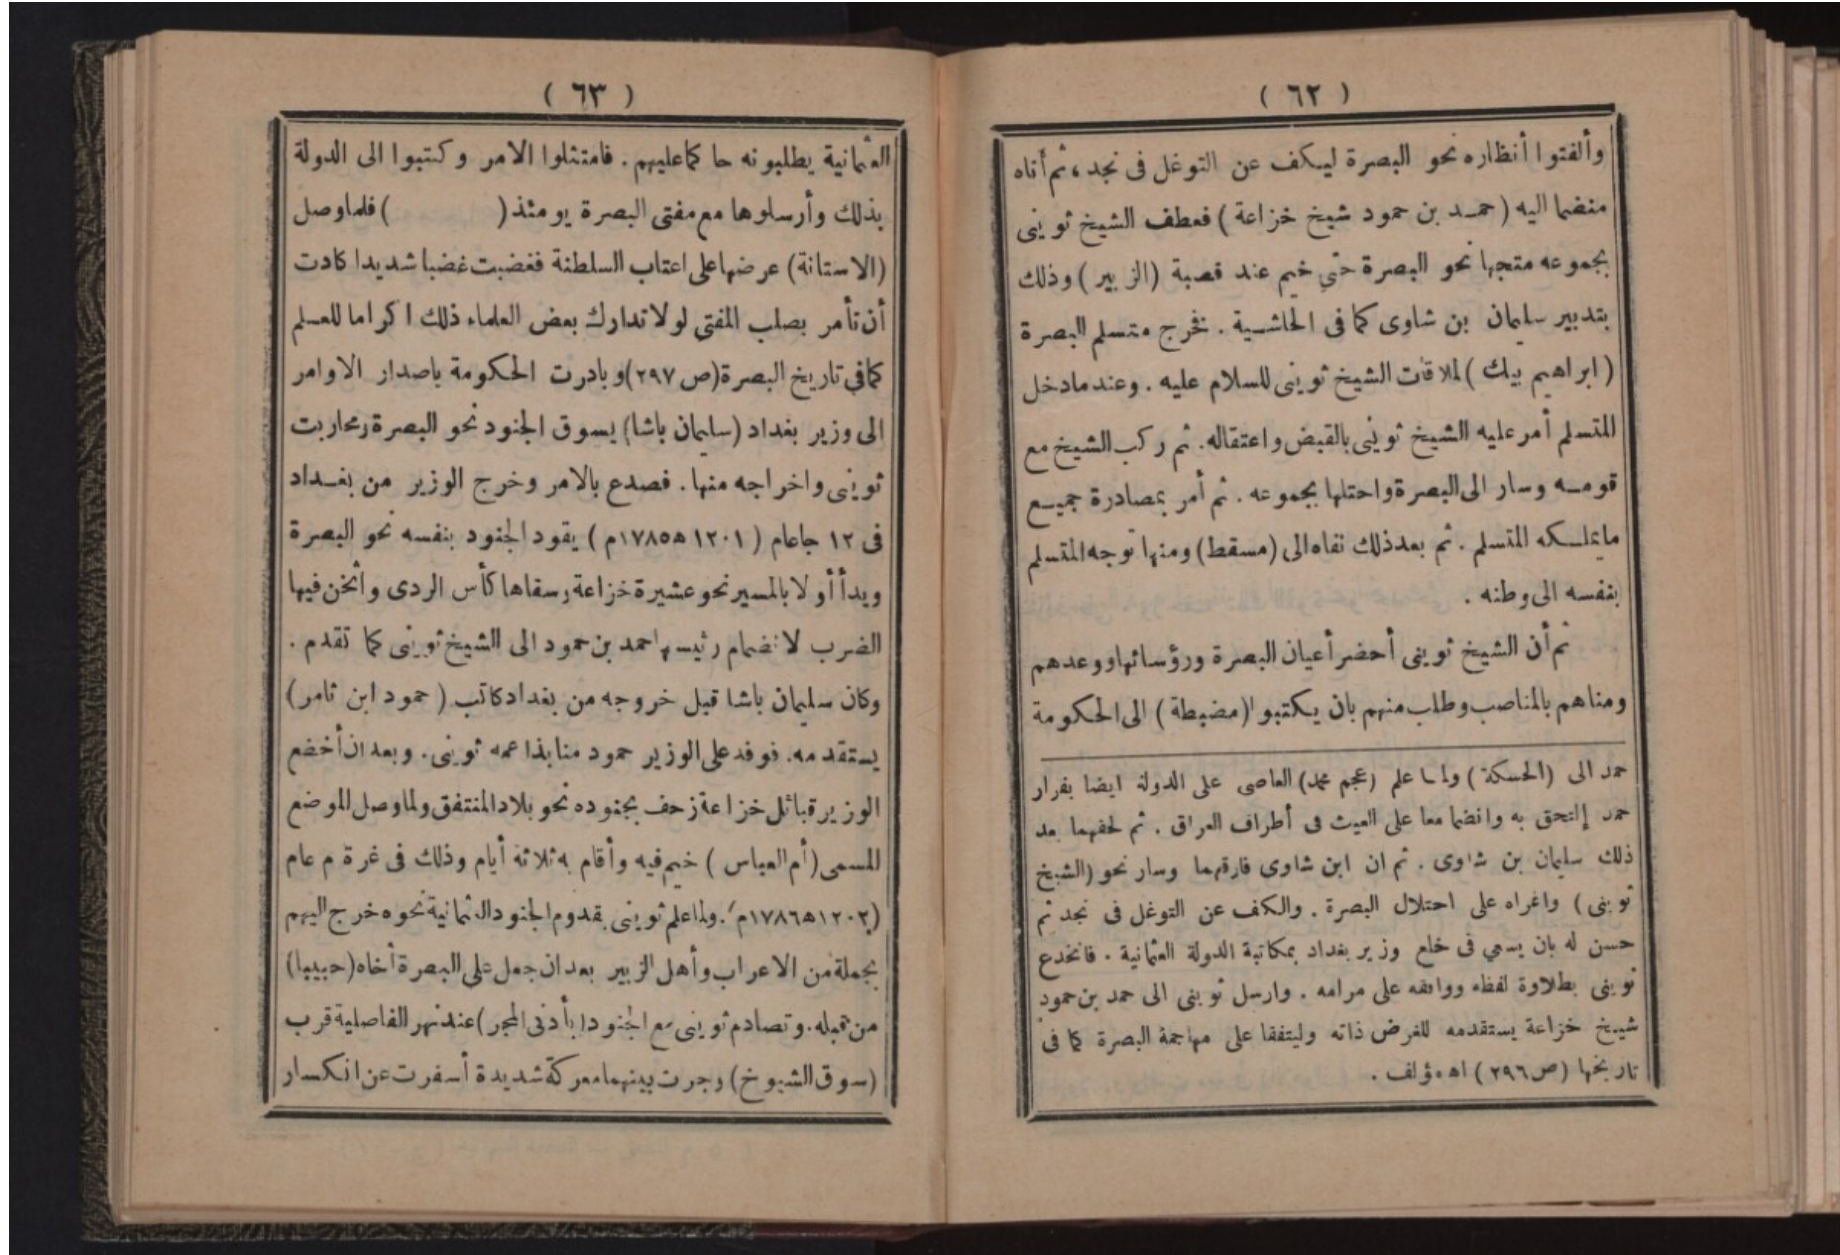 ( ٦٢ )
وألفتوا أنظاره نحو البصرة ليكف عن التوغل فى نجد ، ثم أتاه
منضما اليه ( حمد بن حمود شيخ خزاعة ) فعطف الشيخ ثوينى
بجموعه متجها نحو البصرة حتي خيم عند قصبة ( الزبير ) وذلك
بتدبير سليمان بن شاوى كما فى الحاشية . فخرج متسلم البصرة
( ابراهيم بيك ) لملاقات الشيخ ثوينى للسلام عليه . وعند مادخل
المتسلم أمر عليه الشيخ ثوينى بالقبض واعتقاله . ثم ركب الشيخ مع
قومه وسار الى البصرة واحتلها بجموعه . ثم أمر بمصادرة جميع
مايملكه المتسلم . ثم بعد ذلك نفاه الى ( مسقط ) ومنها توجه المتسلم
بنفسه الى وطنه .
ثم أن الشيخ ثوينى أحضر أعيان البصرة ورؤسائها ووعدهم
ومناهم بالمناصب وطلب منهم بان يكتبوا ( مضبطة ) الى الحكومة
حمد الى ( الحسكة ) ولما علم ( عجم محمد ) العاصى على الدولة ايضا بفرار
حمد إلتحق به وانضما معا على العيث فى أطراف العراق . ثم لحقهما بعد
ذلك سليمان بن شاوى . ثم ان ابن شاوى فارقهما وسار نحو ( الشيخ
ثوينى ) واغراه على احتلال البصرة . والكف عن التوغل فى نجد ثم
حسن له بان يسعي فى خلع وزير بغداد بمكاتبة الدولة العثمانية . فانخدع
ثوينى بطلاوة لفظه ووافقه على مرامه . وارسل ثوينى الى حمد بن حمود
شيخ خزاعة يستقدمه للغرض ذاته وليتفقا على مهاجمة البصرة كما فى
تاريخها ( ص ٢٩٦ ) اه مؤلف .
( ٦٣ )
العثمانية يطلبونه حاكما عليهم . فامتثلوا الامر وكتبوا الى الدولة
بذلك وأرسلوها مع مفتى البصرة يومئذ (          ) فلما وصل
( الاستانة ) عرضها على اعتاب السلطنة فغضبت غضبا شديدا كادت
أن تأمر بصلب المفتى لولا تدارك بعض العلماء ذلك اكراما للعلم
كما فى تاريخ البصرة ( ص ٢٩٧ ) وبادرت الحكومة باصدار الاوامر
الى وزير بغداد ( سليمان باشا ) يسوق الجنود نحو البصرة ومحاربت
ثوينى واخراجه منها . فصدع بالامر وخرج الوزير من بغداد
فى ١٢ جا عام ( ١٢٠١ ه ١٧٨٥م ) يقود الجنود بنفسه نحو البصرة
وبدأ أولا بالمسير نحو عشيرة خزاعة وسقاها كأس الردى وأثخن فيها
الضرب لانضمام رئيسها احمد بن حمود الى الشيخ ثوينى كما تقدم .
وكان سليمان باشا قبل خروجه من بغداد كاتب ( حمود ابن ثامر )
يستقدمه . فوفد على الوزير حمود منابذا عمه ثوينى . وبعد ان أخضع
الوزير قبائل خزاعة زحف بجنوده نحو بلاد المنتفق ولما وصل الموضع
المسمى ( أم العباس ) خيم فيه وأقام به ثلاثة أيام وذلك فى غرة م عام
( ١٢٠٢ ه ١٧٨٦م ) . ولما علم ثوينى بقدوم الجنود العثمانية نحوه خرج اليهم
بجملة من الاعراب وأهل الزبير بعد ان جعل على البصرة أخاه ( حبيبا )
من قبله . وتصادم ثوينى مع الجنود ( بأدنى المجر ) عند نهر الفاضلية قرب
( سوق الشيوخ ) وجرت بينهما معركة شديدة أسفرت عن انكسار